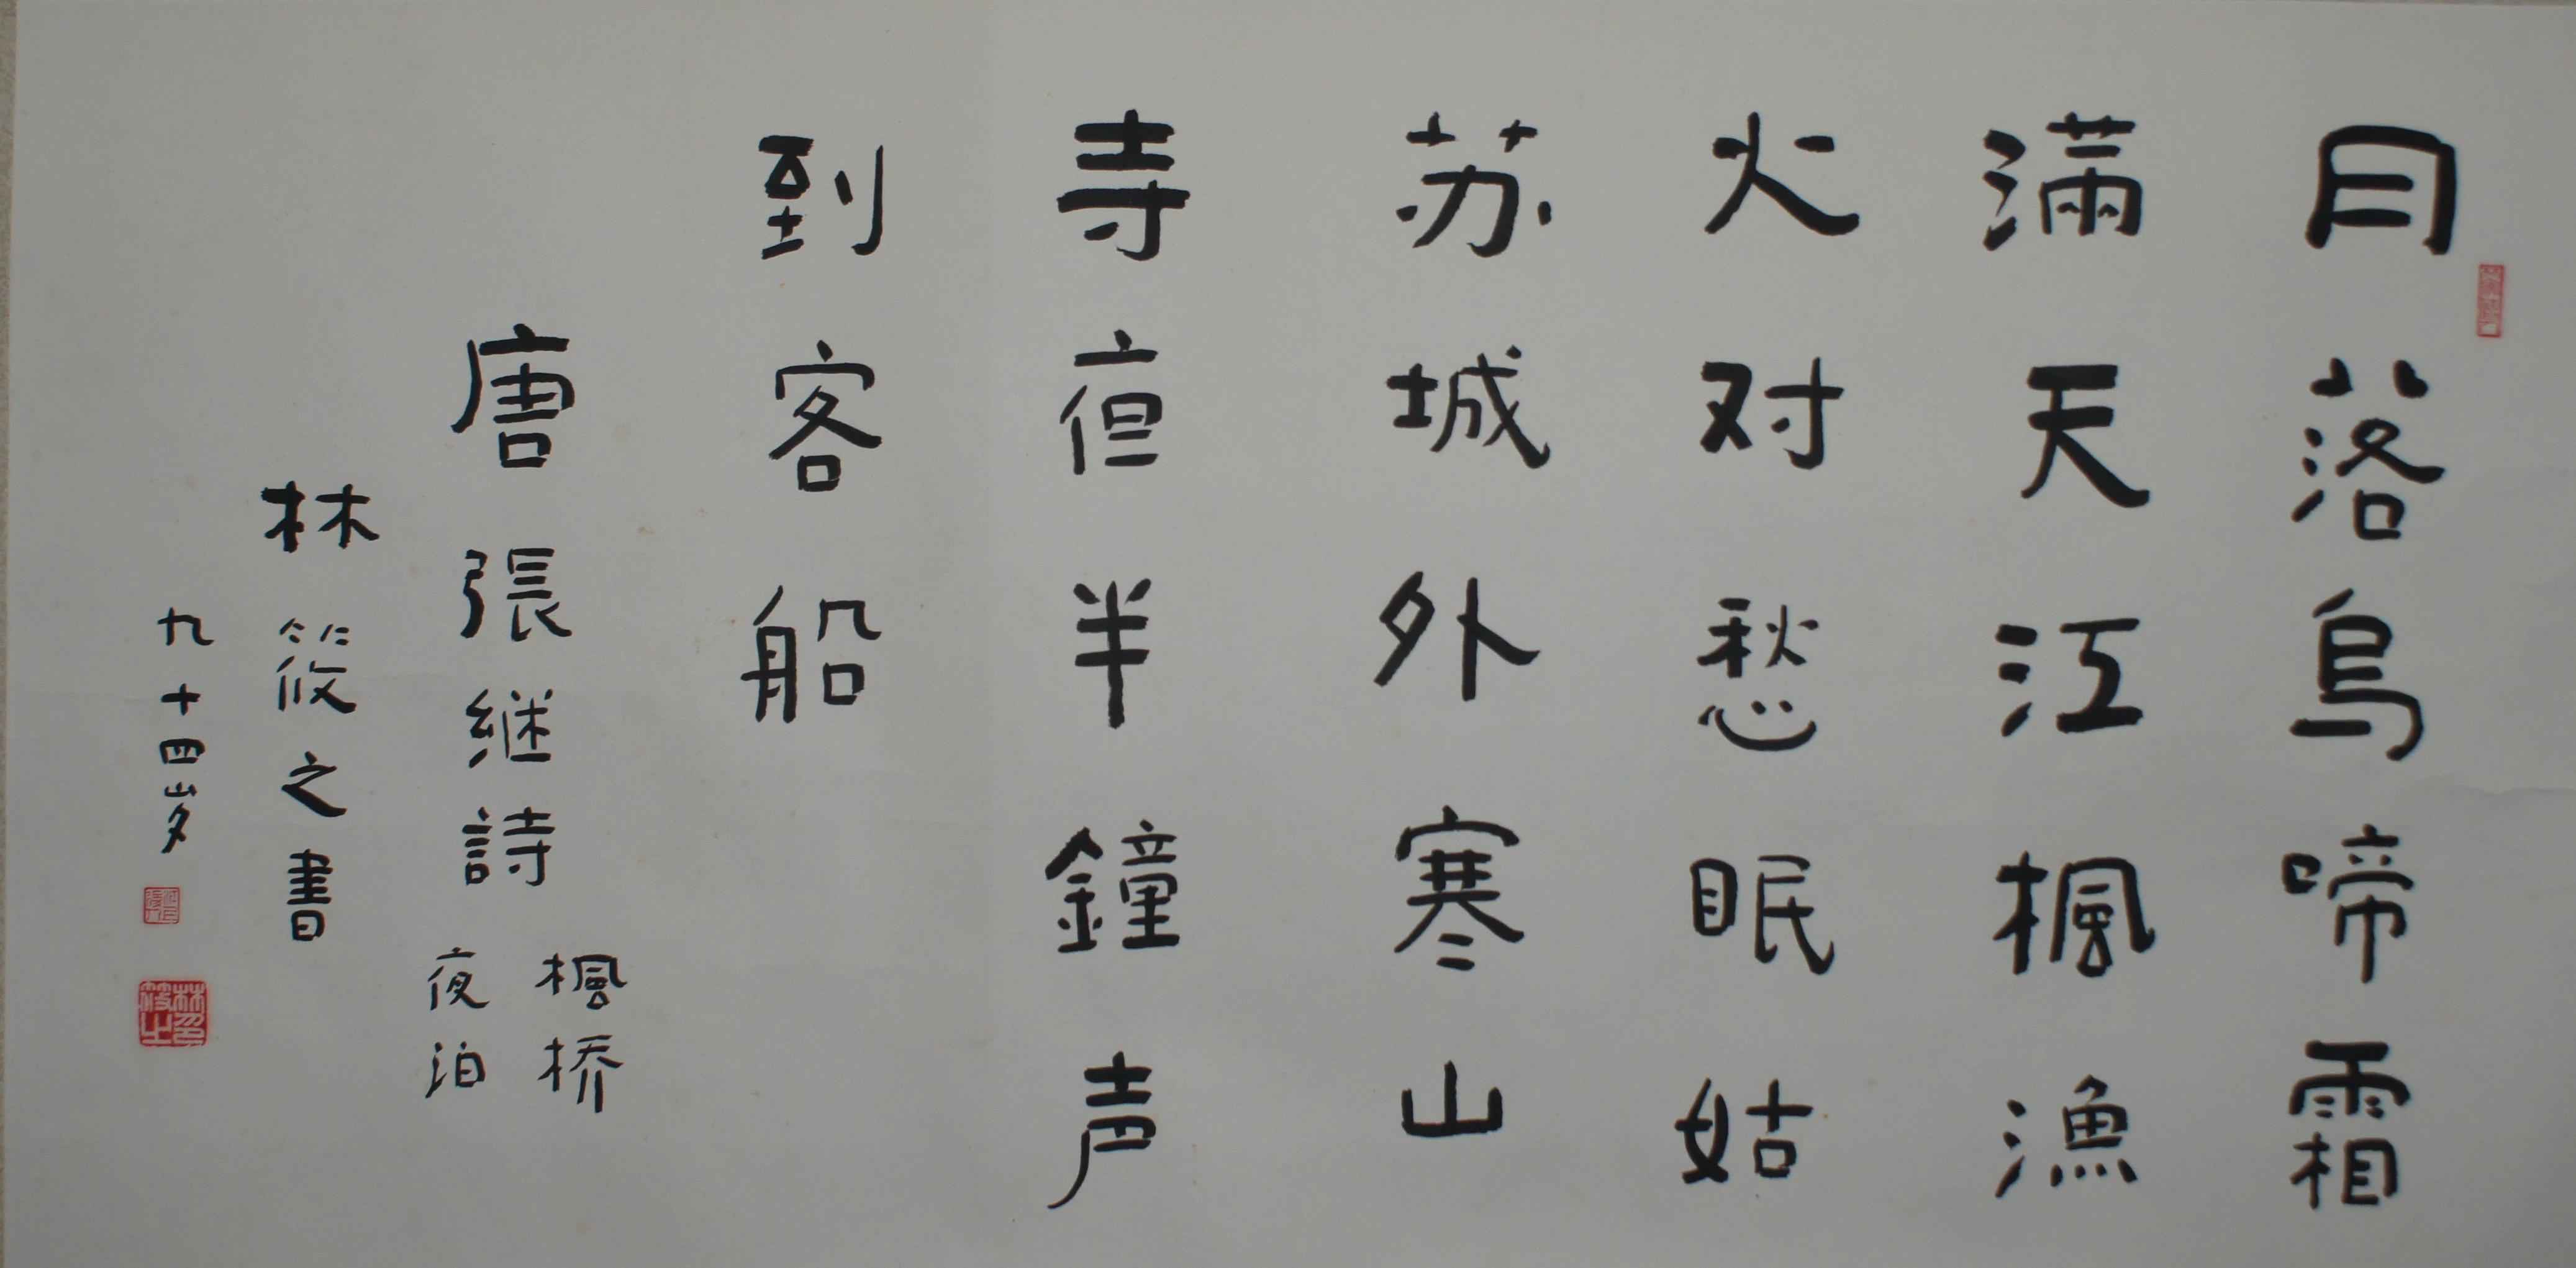 月落烏啼霜
滿天江楓漁
火对愁眠姑
苏城外寒山
寺夜半鐘声
到客船
唐張継詩
楓桥
夜泊
林筱之書
九十四岁
林筱之印